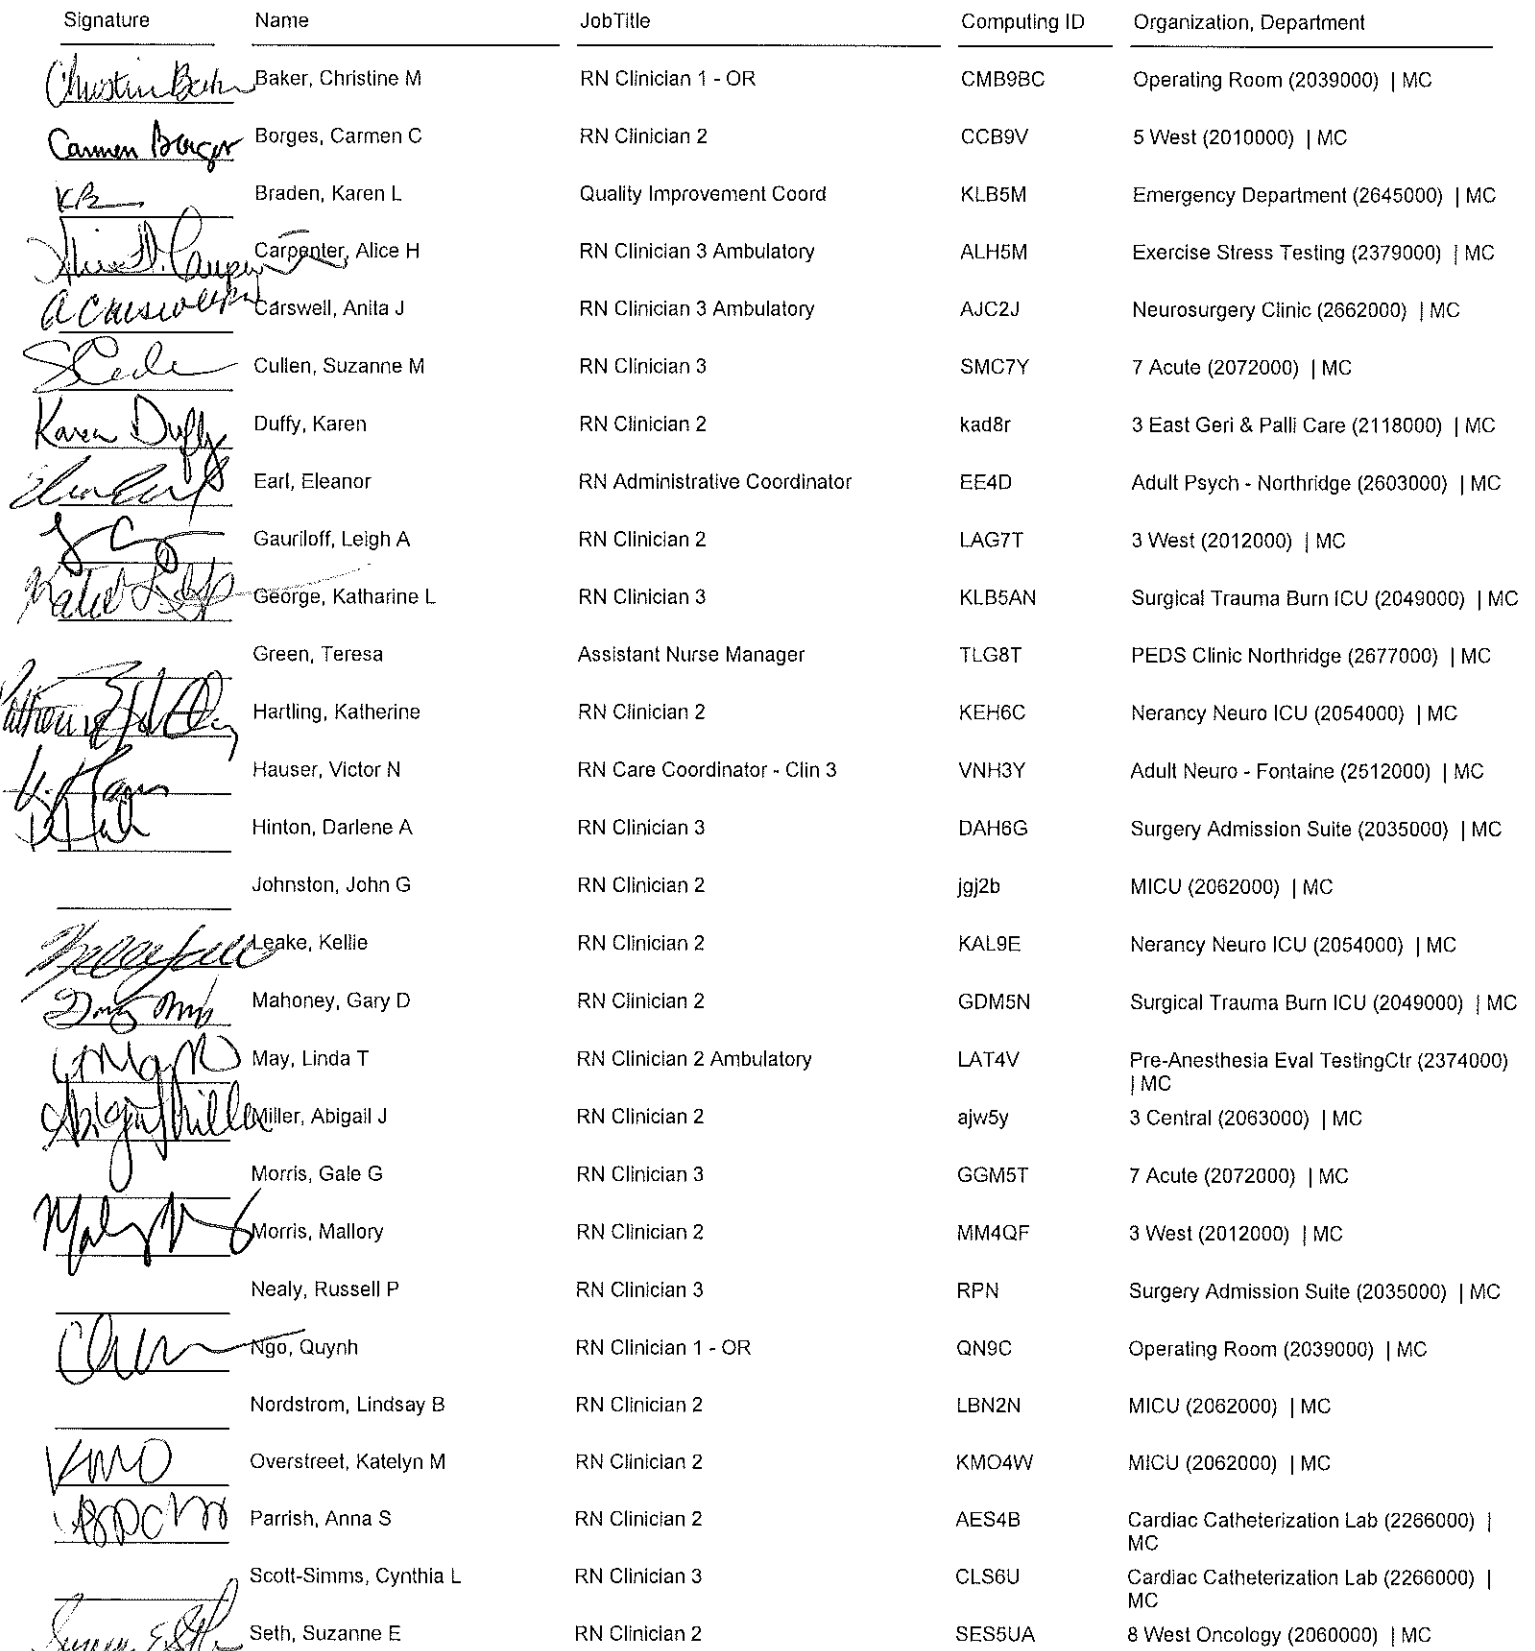 Signature Name JobTitle Computing ID Organization, Department
Christine Baker Baker, Christine M RN Clinician 1 - OR CMB9BC Operating Room (2039000) | MC
Carmen Borges Borges, Carmen C RN Clinician 2 CCB9V 5 West (2010000) | MC
KB Braden, Karen L Quality Improvement Coord KLB5M Emergency Department (2645000) | MC
Carpenter, Alice H RN Clinician 3 Ambulatory ALH5M Exercise Stress Testing (2379000) | MC
A Carswell Carswell, Anita J RN Clinician 3 Ambulatory AJC2J Neurosurgery Clinic (2662000) | MC
Cullen, Suzanne M RN Clinician 3 SMC7Y 7 Acute (2072000) | MC
Karen Duffy Duffy, Karen RN Clinician 2 kad8r 3 East Geri & Palli Care (2118000) | MC
Earl, Eleanor RN Administrative Coordinator EE4D Adult Psych - Northridge (2603000) | MC
Gauriloff, Leigh A RN Clinician 2 LAG7T 3 West (2012000) | MC
George, Katharine L RN Clinician 3 KLB5AN Surgical Trauma Burn ICU (2049000) | MC
Green, Teresa Assistant Nurse Manager TLG8T PEDS Clinic Northridge (2677000) | MC
Hartling, Katherine RN Clinician 2 KEH6C Nerancy Neuro ICU (2054000) | MC
Hauser, Victor N RN Care Coordinator - Clin 3 VNH3Y Adult Neuro - Fontaine (2512000) | MC
Hinton, Darlene A RN Clinician 3 DAH6G Surgery Admission Suite (2035000) | MC
Johnston, John G RN Clinician 2 jgj2b MICU (2062000) | MC
Leake, Kellie RN Clinician 2 KAL9E Nerancy Neuro ICU (2054000) | MC
Mahoney, Gary D RN Clinician 2 GDM5N Surgical Trauma Burn ICU (2049000) | MC
May, Linda T RN Clinician 2 Ambulatory LAT4V Pre-Anesthesia Eval TestingCtr (2374000)
| MC
Abigail Miller Miller, Abigail J RN Clinician 2 ajw5y 3 Central (2063000) | MC
Morris, Gale G RN Clinician 3 GGM5T 7 Acute (2072000) | MC
Morris, Mallory RN Clinician 2 MM4QF 3 West (2012000) | MC
Nealy, Russell P RN Clinician 3 RPN Surgery Admission Suite (2035000) | MC
Ngo, Quynh RN Clinician 1 - OR QN9C Operating Room (2039000) | MC
Nordstrom, Lindsay B RN Clinician 2 LBN2N MICU (2062000) | MC
KMO Overstreet, Katelyn M RN Clinician 2 KMO4W MICU (2062000) | MC
Parrish, Anna S RN Clinician 2 AES4B Cardiac Catheterization Lab (2266000) |
MC
Scott-Simms, Cynthia L RN Clinician 3 CLS6U Cardiac Catheterization Lab (2266000) |
MC
Seth, Suzanne E RN Clinician 2 SES5UA 8 West Oncology (2060000) | MC